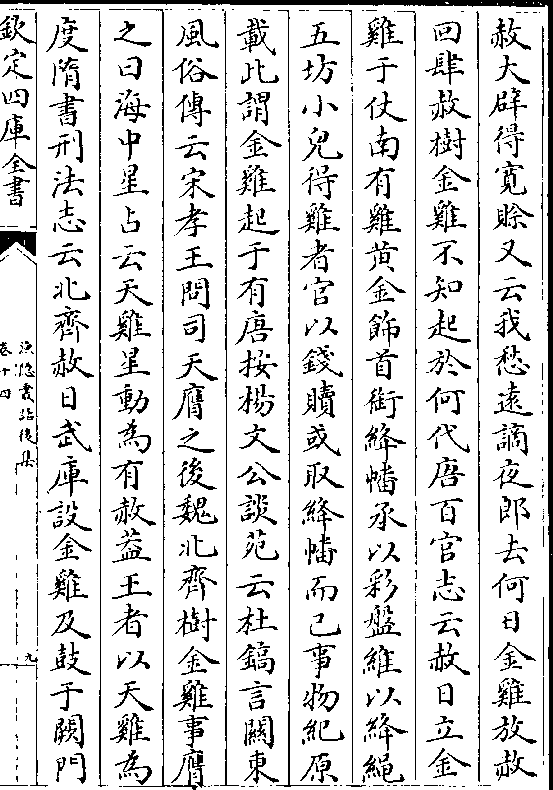 赦大辟得寛賒又云我愁遠謫夜郎去何日金雞放赦
回肆赦樹金雞不知起於何代唐百官志云赦日立金
雞于仗南有雞黄金飾首銜絳幡承以彩盤維以絳繩
五坊小兒得雞者官以錢贖或取絳幡而已事物紀原
載此謂金雞起于有唐按楊文公談苑云杜鎬言關東
風俗傳云宋孝王問司天膺之後魏北齊樹金雞事膺
之曰海中星占云天雞星動為有赦葢王者以天雞為
度隋書刑法志云北齊赦日武庫設金雞及鼓于闕門
欽定四庫全書
漁隱叢話後集
卷十四
九